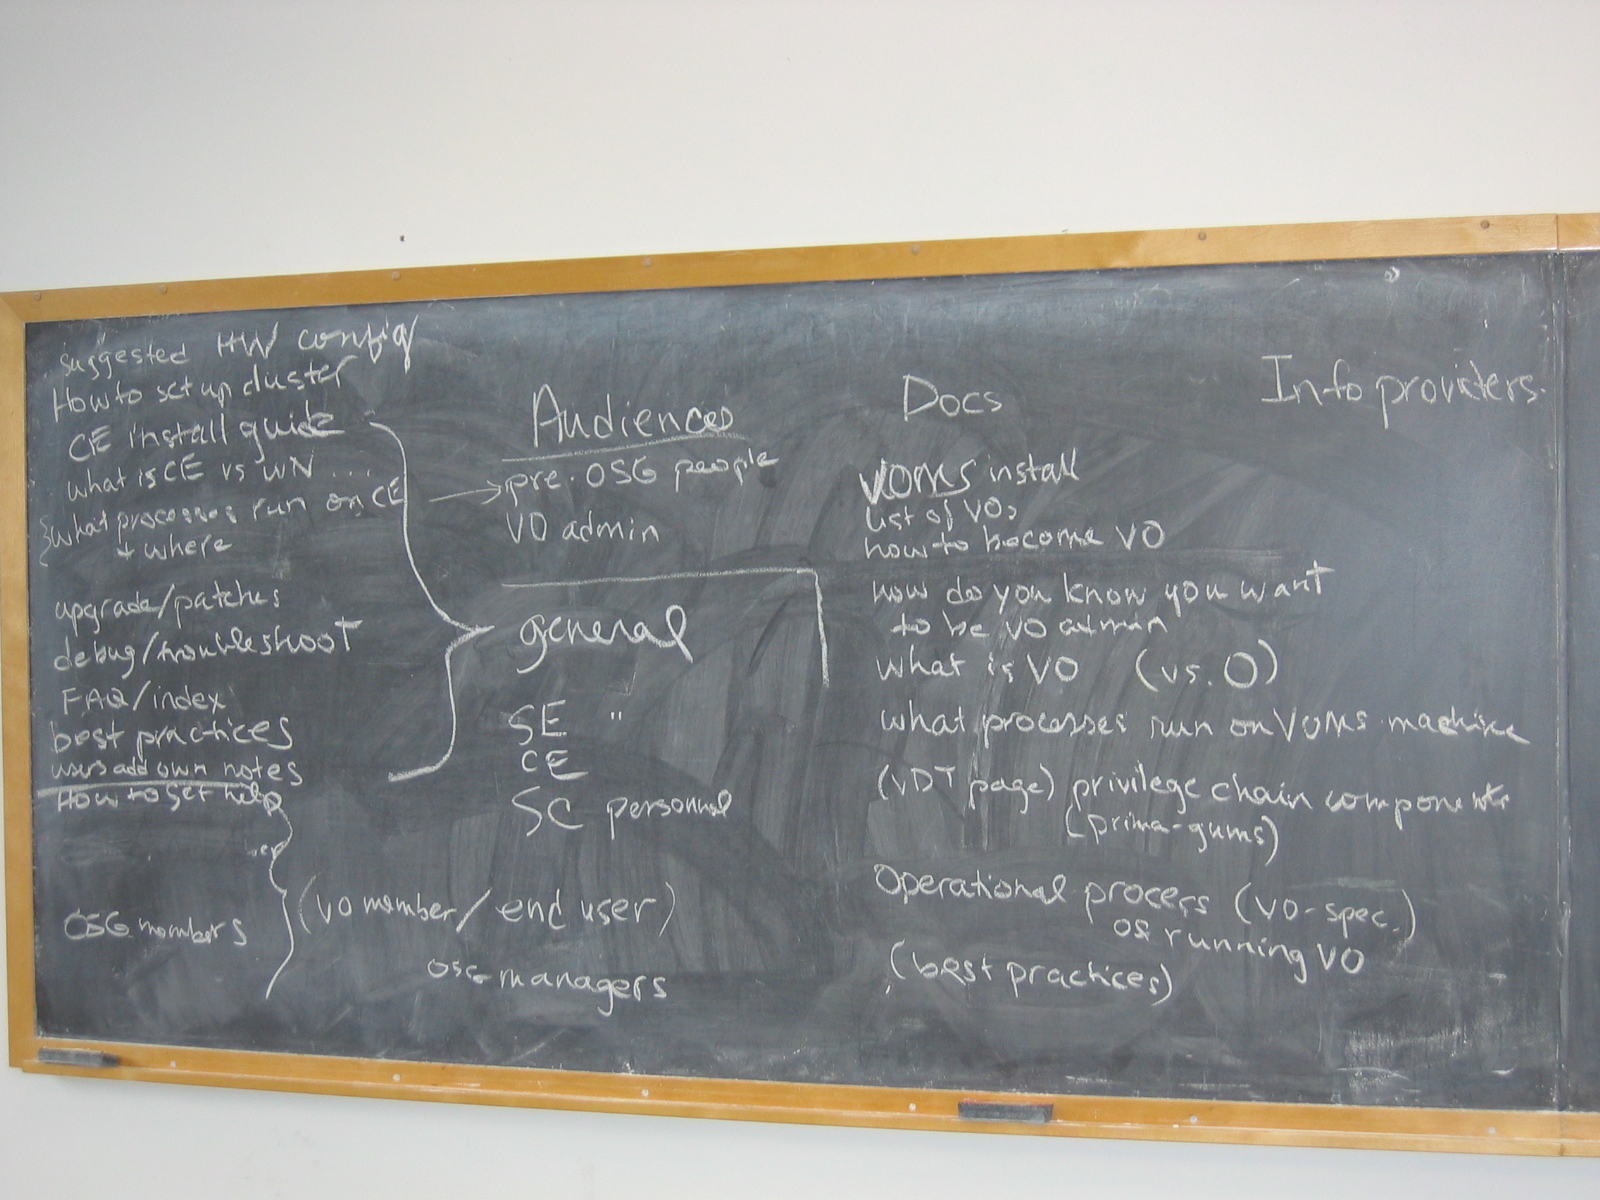 suggested HW config
How to set up cluster
CE install guide
what is CE vs WN ...
what processes run on CE
+ where
upgrade/patches
debug/troubleshoot
FAQ/index
best practices
users add own notes
How to get help
OSG members
Audiences
pre-OSG people
VO admin
general
SE "
CE
SC personnel
(VO member/end user)
OSG managers
Docs
VOMS install
list of VOs
how to become VO
how do you know you want
to be VO admin
what is VO (vs. O)
what processes run on VOMS machine
(VDT page) privilege chain components
(prima-gums)
Operational process (VO-spec.)
of running VO
(best practices)
Info providers.